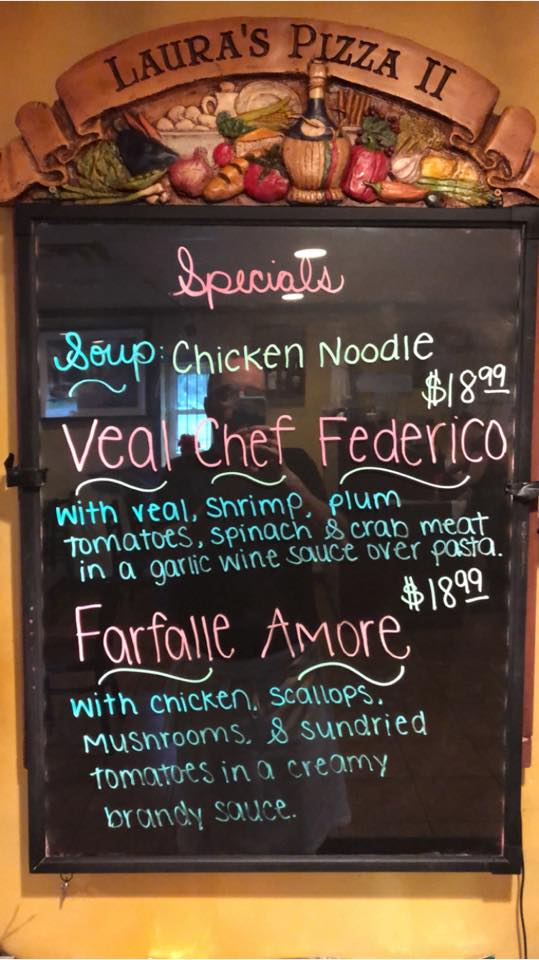 LAURA'S PIZZA II
Specials
Soup: Chicken Noodle
$18.99
Veal Chef Federico
with veal, shrimp, plum
tomatoes, spinach & crab meat
in a garlic wine sauce over pasta.
$18.99
Farfalle Amore
with chicken, scallops,
mushrooms, & sundried
tomatoes in a creamy
brandy sauce.